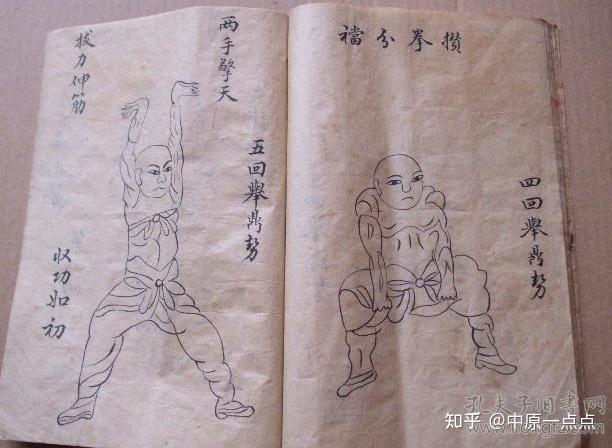 攢拳分襠
四回舉鼎势
两手擎天
五回舉鼎势
拔力伸筋
收功如初
孔夫子旧书网
知乎 @中原一点点